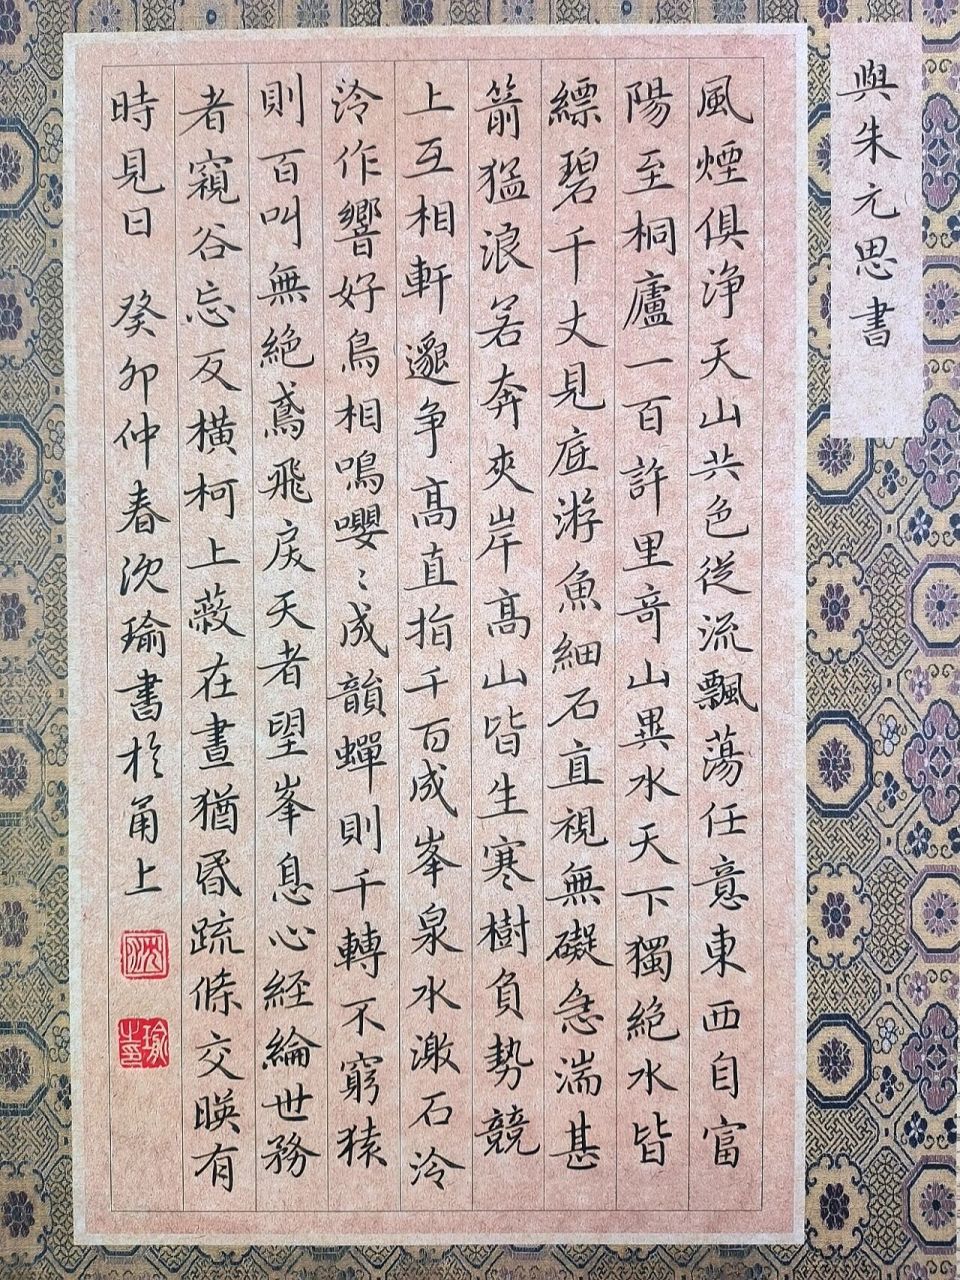 與朱元思書
風煙俱淨天山共色從流飄蕩任意東西自富
陽至桐廬一百許里奇山異水天下獨絕水皆
縹碧千丈見底游魚細石直視無礙急湍甚
箭猛浪若奔夾岸高山皆生寒樹負勢競
上互相軒邈爭高直指千百成峯泉水激石泠
泠作響好鳥相鳴嚶〻成韻蟬則千轉不窮猿
則百叫無絕鳶飛戾天者望峯息心經綸世務
者窺谷忘反橫柯上蔽在晝猶昏疏條交暎有
時見日 癸卯仲春沈瑜書於甬上
沈
瑜